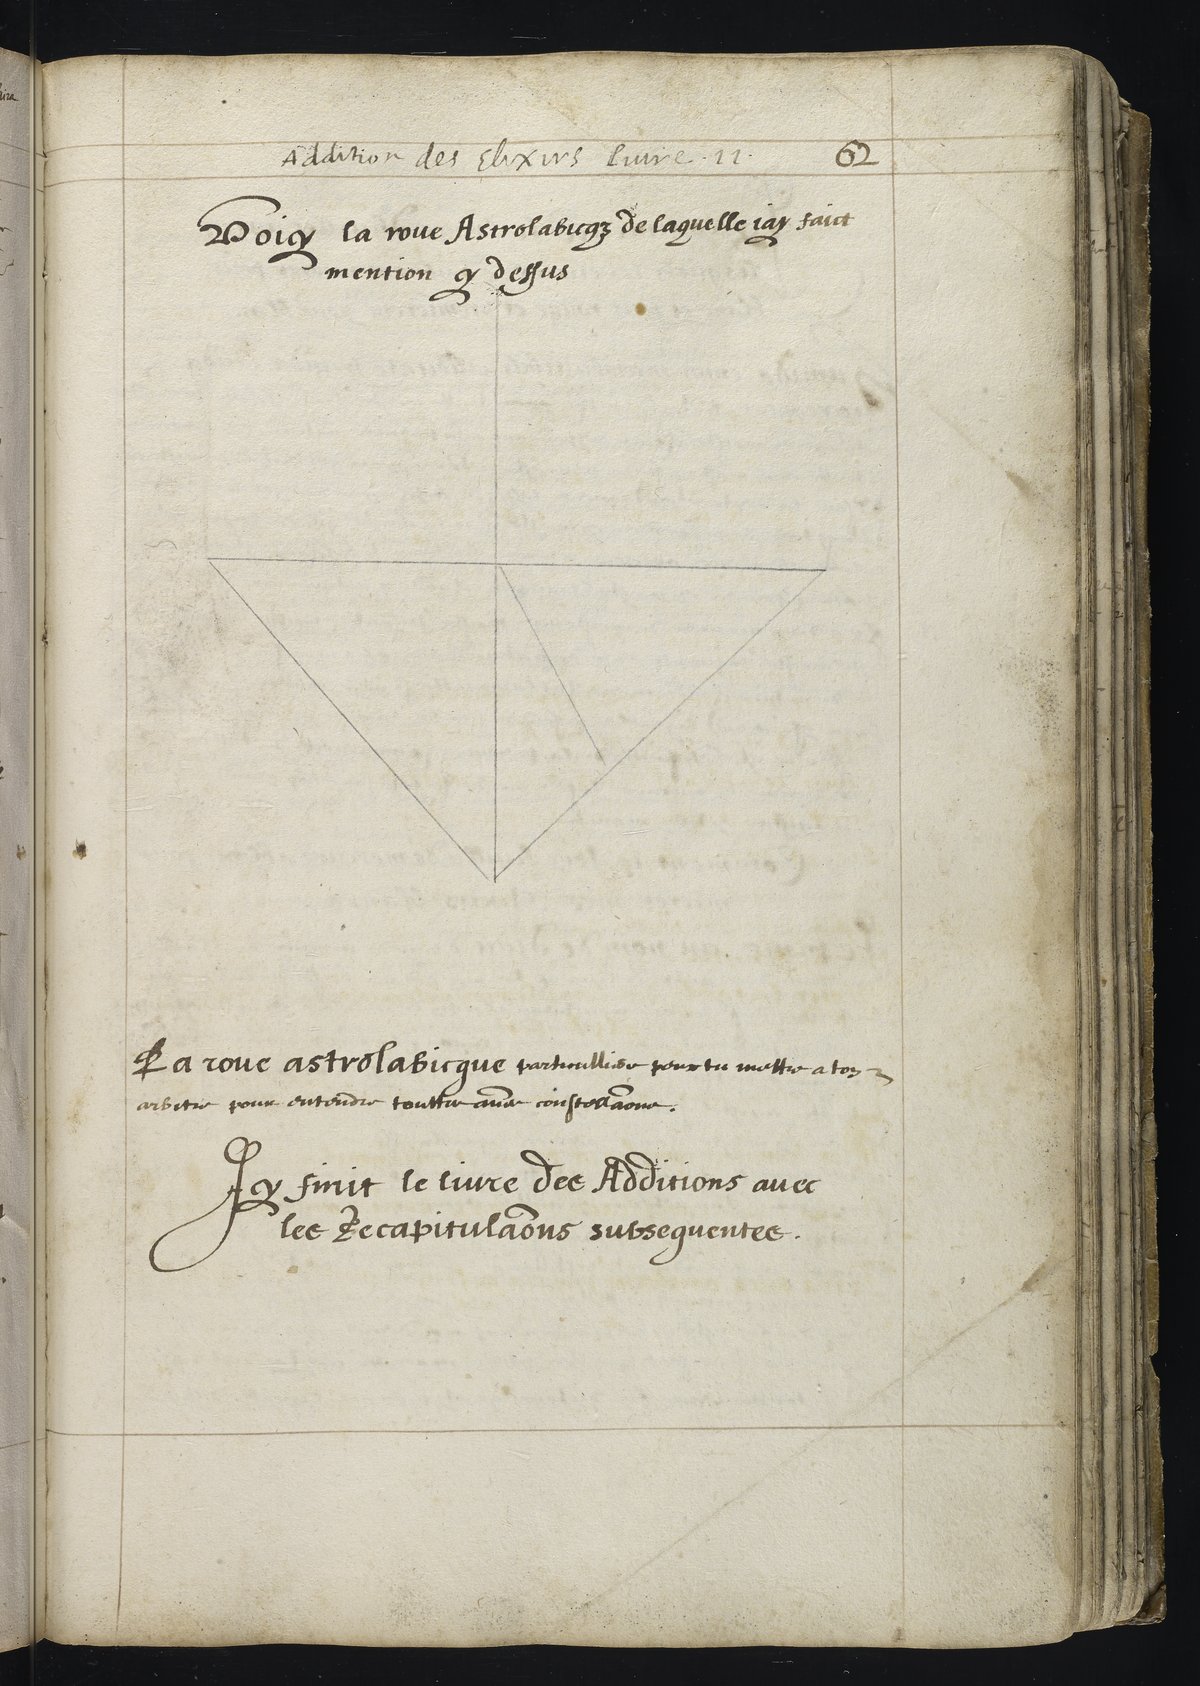 Addition des Elixirs livre .11. 62
Voicy la roue Astrolabicqz de laquelle iay faict
mention cy dessus
La roue astrolabicque particulliere pour tu mettre a ton
arbitre pour entendre touttes aues constellaõns.
Icy finit le livre des Additions avec
les Recapitulaõns subsequentes.